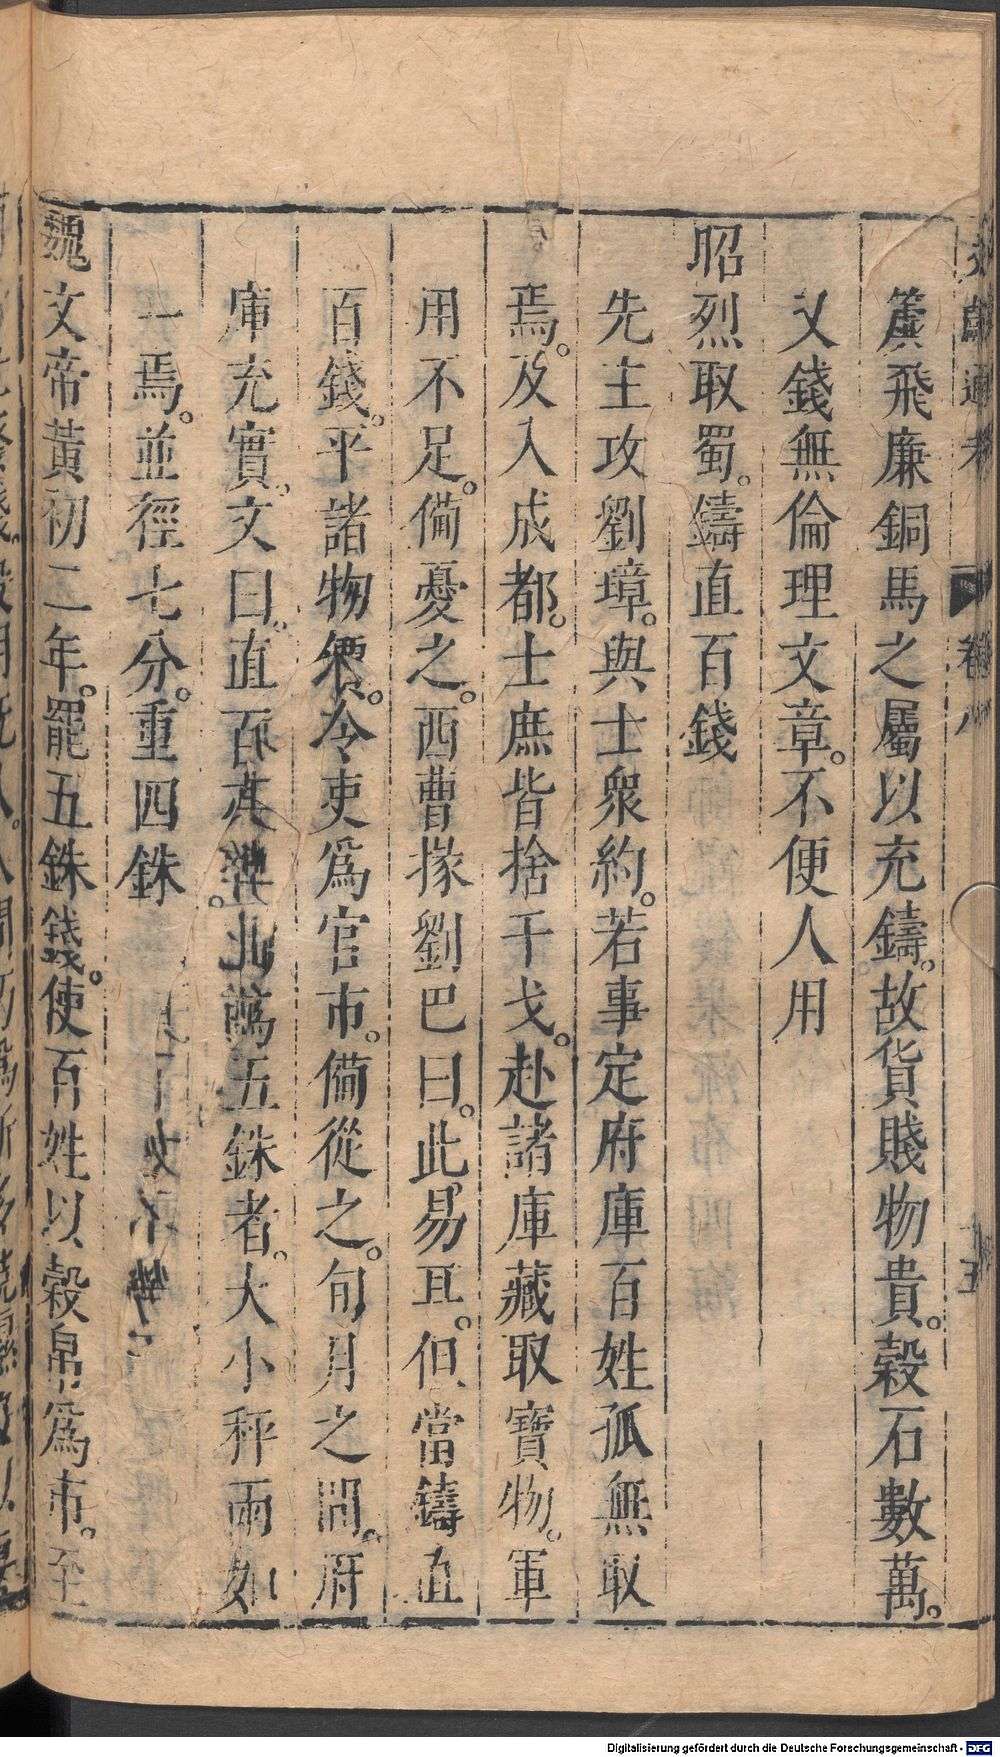 文獻通考 卷八 十五
簴飛廉銅馬之屬以充鑄。故貨賤物貴。穀石數萬。
又錢無倫理文章。不便人用
昭烈取蜀。鑄直百錢
先主攻劉璋。與士衆約。若事定府庫百姓孤無取
焉。及入成都。士庶皆捨干戈。赴諸庫藏取寶物。軍
用不足。備憂之。西曹掾劉巴曰。此易耳。但當鑄直
百錢。平諸物價。令吏爲官市。備從之。旬月之間。府
庫充實。文曰。直百。亦勒爲五銖者。大小秤兩如
一焉。並徑七分。重四銖
魏文帝黃初二年。罷五銖錢。使百姓以穀帛爲市。至
Digitalisierung gefördert durch die Deutsche Forschungsgemeinschaft - DFG